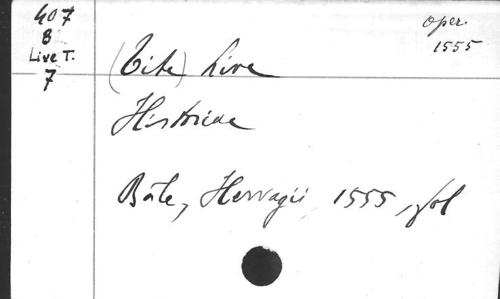 407
B
Live T.
7
oper.
1555
(Tite) Live
Historiae
Bâle, Hervagii, 1555, fol